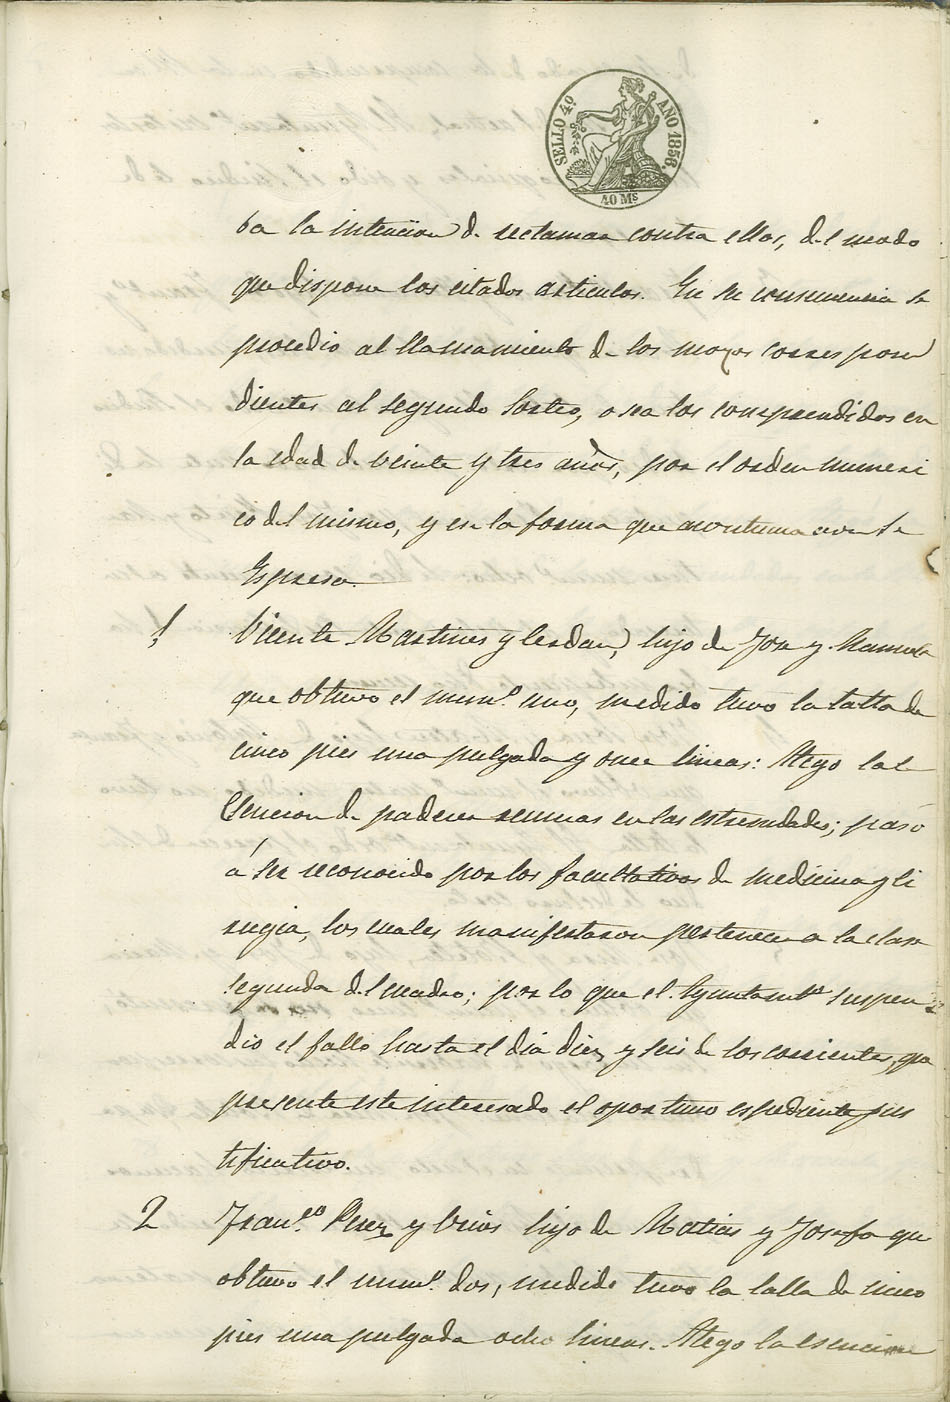 SELLO 4º AÑO 1856.
40 Mˢ
ba la intencion de reclamar contra ellos, del modo
que dispone los citados articulos. En su consecuencia se
procedio al llamamiento de los mozos correspon
dientes al segundo Sorteo, o sea los comprendidos en
la edad de veinte y tres años, por el orden numeri
co del mismo, y en la forma que a continuacion se
Espresa
1 Vicente Martines y hijo de Jose y Manuela
que obtuvo el num.º uno, medido tuvo la talla de
cinco pies una pulgada y once lineas: Alego la e
Esencion de padecer reumas en las estremidades; pasó
á ser reconocido por los facultativos de medicina y ci
rugia, los cuales manifestaron pertenecer a la clase
segunda del cuadro; por lo que el Ayuntamtº suspen
dio el fallo hasta el dia diez y seis de los corrientes, que
presente este interesado el oportuno espediente jus
tificativo.
2 Franᶜᵒ Perez y hijo de Matias y Josefa que
obtuvo el num.º dos, medido tuvo la talla de cinco
pies una pulgada ocho lineas. Alego la esencion